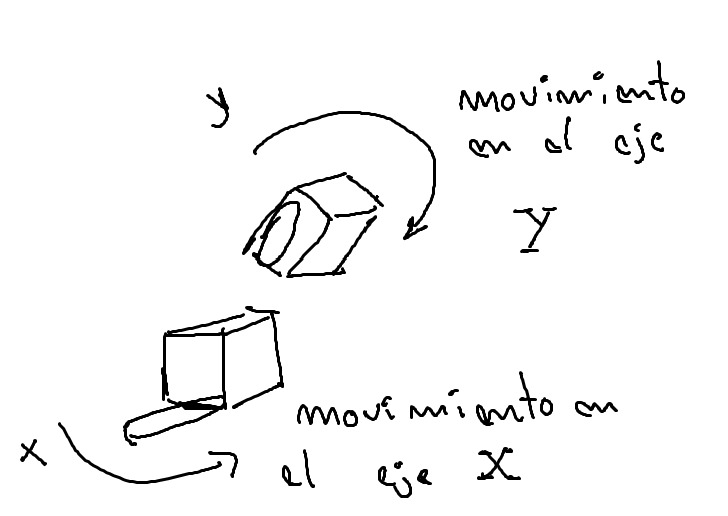 y
movimiento
en el eje
Y
movimiento en
x
el eje X